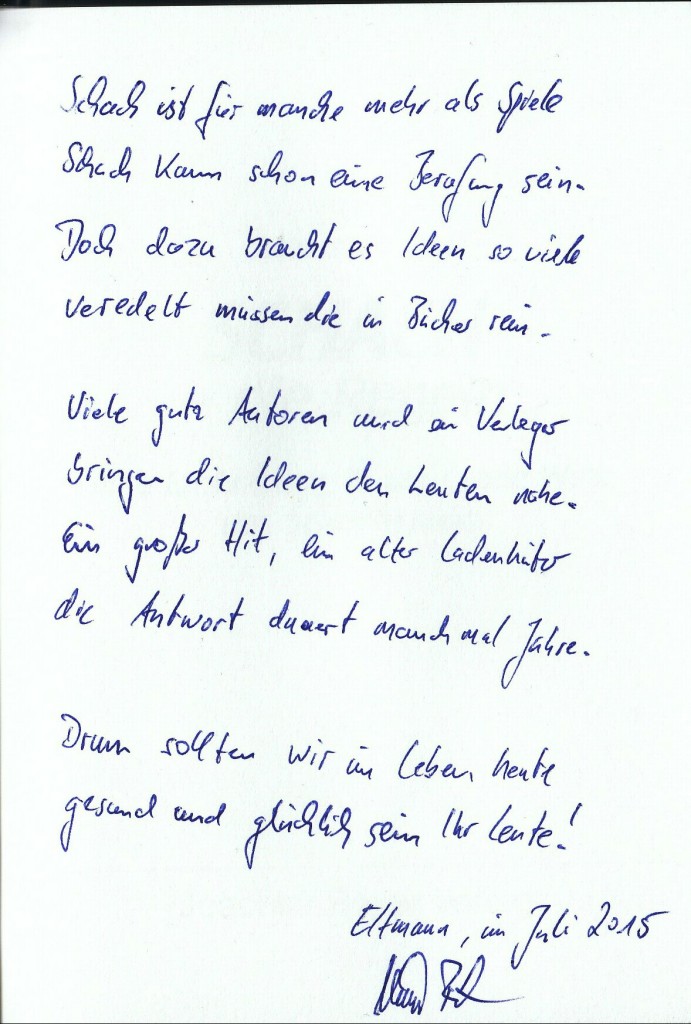 Schach ist für manche mehr als Spiele
Schach kann schon eine Berufung sein.
Doch dazu braucht es Ideen so viele
veredelt müssen die in Bücher rein.
Viele gute Autoren und ein Verleger
bringen die Ideen den Leuten nahe.
Ein großer Hit, ein alter Ladenhüter
die Antwort dauert manchmal Jahre.
Drum sollten wir im Leben heute
gesund und glücklich sein Ihr Leute!
Eltmann, im Juli 2015